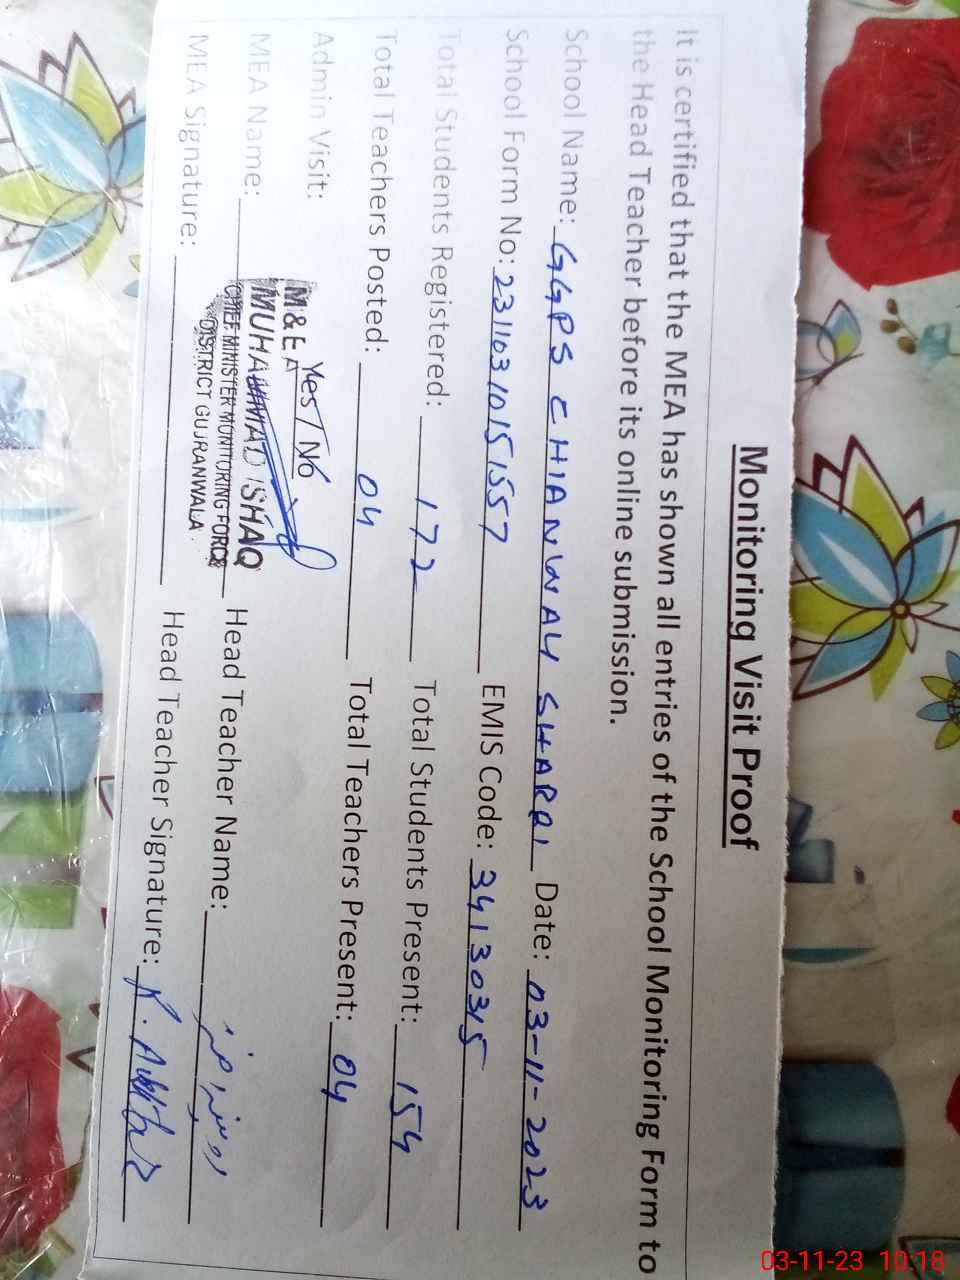 Monitoring Visit Proof
It is certified that the MEA has shown all entries of the School Monitoring Form to
the Head Teacher before its online submission.
School Name: GGPS CHIANWALI SHARQI Date: 03-11-2023
School Form No: 231103101515557 EMIS Code: 34130315
Total Students Registered: 172 Total Students Present: 154
Total Teachers Posted: 04 Total Teachers Present: 04
Admin Visit: Yes / No
M & E A
MEA Name: MUHAMMAD ISHAQ Head Teacher Name:
CHIEF MINISTER MONITORING FORCE
DISTRICT GUJRANWALA.
MEA Signature: Head Teacher Signature:
03-11-23 10:18